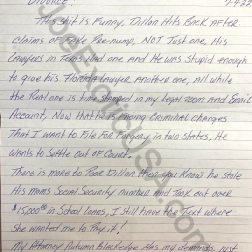 Divorce!
This shit is Funny. Dillon Hits Back After
claims of Fake Pre-nump, NOT Just one, His
Lawyers in Texas Had one and He was Stupid enough
to give his Florida Lawyer Another one, All while
the Real one is time stamped in my Legal zoom and Email
Account. Now that he is facing Criminal charges
That I want to File For Forgery in two states, He
wants to Settle out of Court.
There is more to Dillon then you Know he stole
His moms Social Security number and Took out over
$15,000 in School Loans, I still have the Text where
She wanted me to Pay it!
My Attorney Autumn Has my demands, just